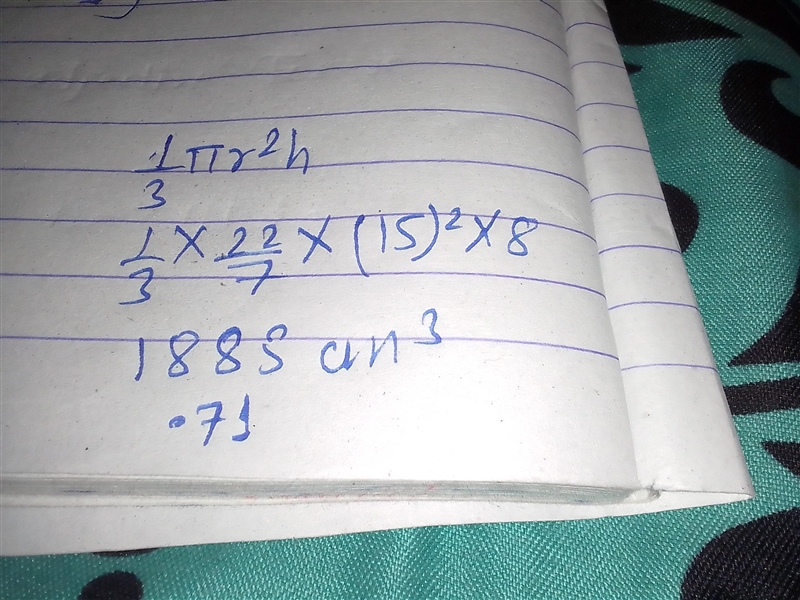 1/3 πr²h
1/3 × 22/7 × (15)² × 8
1885 cm³
.71